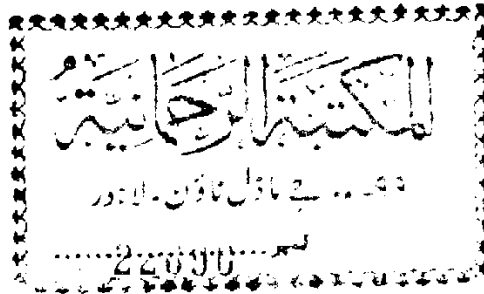 المکتبۃ الرحمانیۃ
۹۹۔۔ جے ماڈل ٹاؤن۔ لاہور
نمبر......22000......